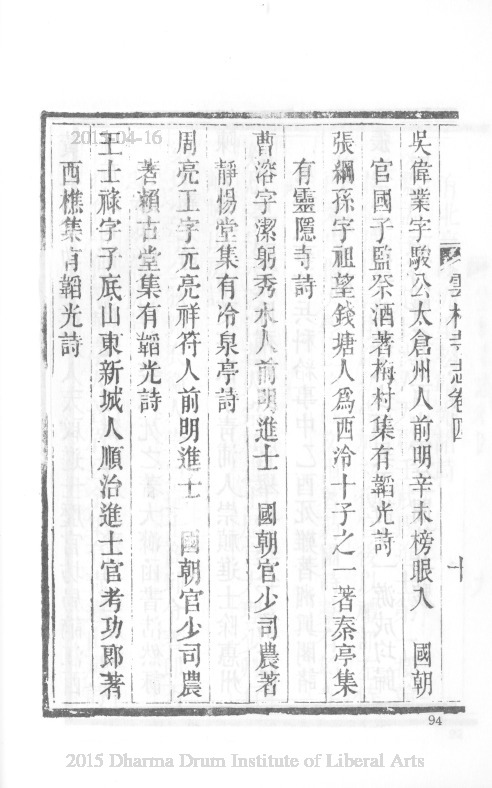 雲林寺志卷四
十
吳偉業字駿公太倉州人前明辛未榜眼入 國朝
官國子監祭酒著梅村集有韜光詩
張綱孫字祖望錢塘人爲西泠十子之一著秦亭集
有靈隱寺詩
曹溶字潔躬秀水人前明進士 國朝官少司農著
靜惕堂集有冷泉亭詩
周亮工字元亮祥符人前明進士 國朝官少司農
著賴古堂集有韜光詩
王士祿字子底山東新城人順治進士官考功郎著
西樵集有韜光詩
2015-04-16
94
2015 Dharma Drum Institute of Liberal Arts